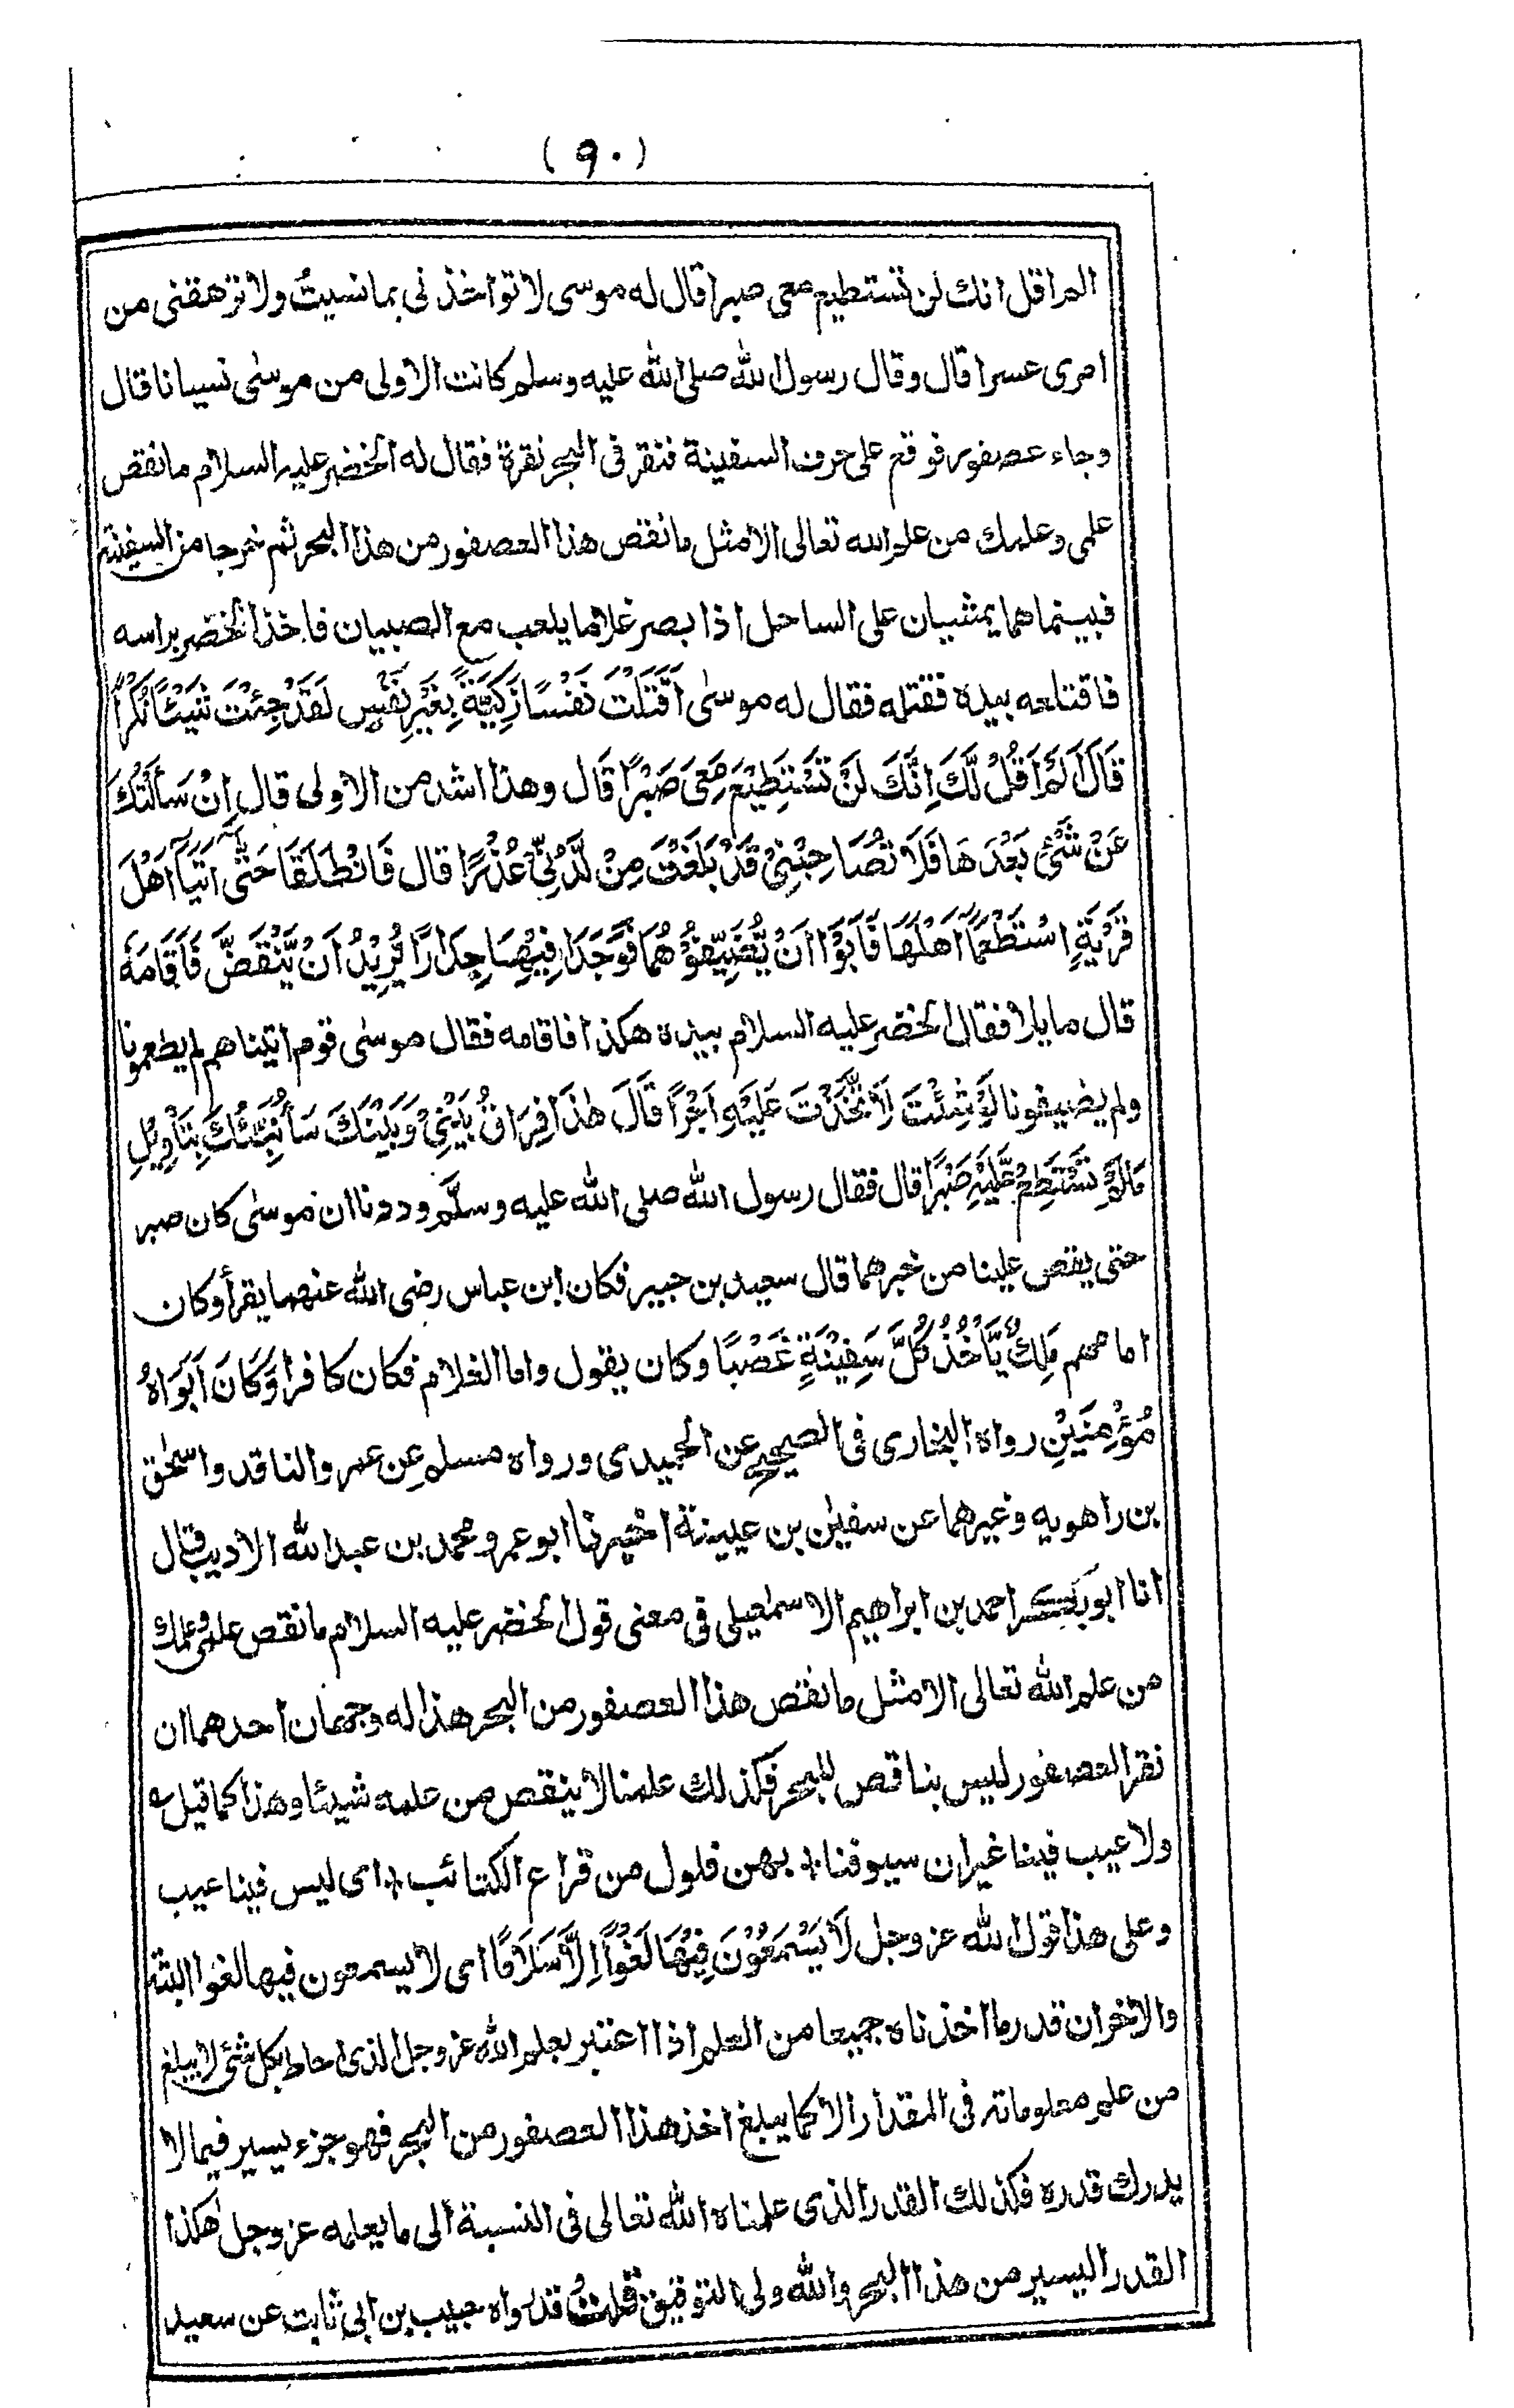 (٩٠)
الم اقل انك لن تستطيع معى صبرا قال له موسى لا تؤاخذنى بما نسيتُ ولا ترهقنى من
امرى عسرا قال وقال رسول الله صلى الله عليه وسلم كانت الاولى من موسٰى نسيانا قال
وجاء عصفور فوقع على حرف السفينة فنقر فى البحر نقرة فقال له الخضر عليه السلام ما نقص
علمى وعلمك من علم الله تعالى الا مثل ما نقص هذا العصفور من هذا البحر ثم خرجا من السفينة
فبينما هما يمشيان على الساحل اذا بصر غلاما يلعب مع الصبيان فاخذ الخضر براسه
فاقتلعه بيده فقتله فقال له موسٰى اَقَتَلْتَ نَفْسًا زَكِيَّةً بِغَيْرِ نَفْسٍ لَقَدْ جِئْتَ شَيْئًا نُّكْرًا
قَالَ اَلَمْ اَقُلْ لَّكَ اِنَّكَ لَنْ تَسْتَطِيْعَ مَعِيَ صَبْرًا قَال وهذا اشد من الاولى قال اِنْ سَأَلْتُكَ
عَنْ شَيْءٍ بَعْدَهَا فَلَا تُصَاحِبْنِيْ قَدْ بَلَغْتَ مِنْ لَّدُنِّيْ عُذْرًا قال فَانْطَلَقَا حَتّٰى اَتَيَا اَهْلَ
قَرْيَةِ اسْتَطْعَمَا اَهْلَهَا فَاَبَوْا اَنْ يُّضَيِّفُوْهُمَا فَوَجَدَا فِيْهَا جِدَارًا يُرِيْدُ اَنْ يَّنْقَضَّ فَاَقَامَهٗ
قال مايلا فقال الخضر عليه السلام بيده هكذا فاقامه فقال موسٰى قوم اتيناهم لم يطعمونا
ولم يضيفونا لَوْ شِئْتَ لَاتَّخَذْتَ عَلَيْهِ اَجْرًا قَالَ هٰذَا فِرَاقُ بَيْنِيْ وَبَيْنِكَ سَأُنَبِّئُكَ بِتَأْوِيْلِ
مَالَمْ تَسْتَطِعْ عَّلَيْهِ صَبْرًا قال فقال رسول الله صلى الله عليه وسلَّم وددنا ان موسٰى كان صبر
حتى يقص علينا من خبرهما قال سعيد بن جبير فكان ابن عباس رضى الله عنهما يقرأ وكان
امامهم مَلِكٌ يَّأْخُذُ كُلَّ سَفِيْنَةٍ غَصْبًا وكان يقول واما الغلام فكان كافرا وَّكَانَ اَبَوَاهُ
مُؤْمِنَيْنِ رواه البخارى فى الصحيح عن الحميدى ورواه مسلم عن عمرو الناقد واسحٰق
بن راهويه وغيرهما عن سفيٰن بن عيينة اخبرنا ابو عمرو محمد بن عبد الله الاديب قال
انا ابو بكر احمد بن ابراهيم الاسمٰعيلى فى معنى قول الخضر عليه السلام ما نقص علمى وعلمك
من علم الله تعالى الا مثل ما نقص هذا العصفور من البحر هذا له وجهان احدهما ان
نقر العصفور ليس بناقص للبحر فكذلك علمنا لا ينقص من علمه شيئا وهذا كما قيل ؎
ولا عيب فينا غير ان سيوفنا * بهن فلول من قراع الكتائب * اى ليس فينا عيب
وعلى هذا قول الله عز وجل لَا يَسْمَعُوْنَ فِيْهَا لَغْوًا اِلَّا سَلَامًا اى لا يسمعون فيها لغوا البتة
والاخر ان قدر ما اخذناه جميعا من العلم اذا اعتبر بعلم الله عز وجل الذى احاط بكل شئ لا يبلغ
من علم معلوماته فى المقدار الا كما يبلغ اخذ هذا العصفور من البحر فهو جزء يسير فيما لا
يدرك قدره فكذلك القدر الذى علمناه الله تعالى فى النسبة الى ما يعلمه عز وجل هٰكذا
القدر اليسير من هذا البحر والله ولى التوفيق قلتُ قد رواه حبيب بن ابى ثابت عن سعيد